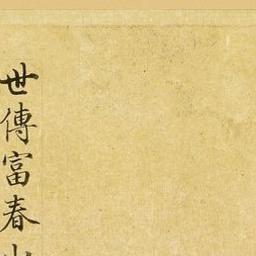 世傳富春山